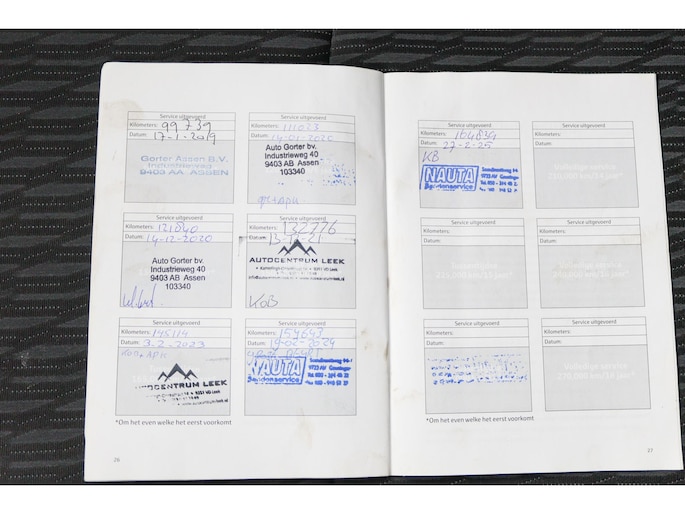 Service uitgevoerd
Kilometers: 99739
Datum: 17-1-2019
Gorter Assen B.V.
Industrieweg
9403 AA ASSEN
Service uitgevoerd
Kilometers: 111023
Datum: 14-01-2020
Auto Gorter bv.
Industrieweg 40
9403 AB Assen
103340
Service uitgevoerd
Kilometers: 121040
Datum: 14-12-2020
Auto Gorter bv.
Industrieweg 40
9403 AB Assen
103340
Service uitgevoerd
Kilometers: 132776
Datum: 13-12-21
AUTOCENTRUM LEEK
KOB
Service uitgevoerd
Kilometers: 145114
Datum: 3-2-2023
AUTOCENTRUM LEEK
Service uitgevoerd
Kilometers: 154643
Datum: 19-02-2024
NAUTA
Bandenservice
*Om het even welke het eerst voorkomt
26
Service uitgevoerd
Kilometers: 164839
Datum: 27-2-25
KB
NAUTA
Bandenservice
Service uitgevoerd
Kilometers:
Datum:
Service uitgevoerd
Kilometers:
Datum:
Service uitgevoerd
Kilometers:
Datum:
Service uitgevoerd
Kilometers:
Datum:
Service uitgevoerd
Kilometers:
Datum:
Volledige service
*Om het even welke het eerst voorkomt
27